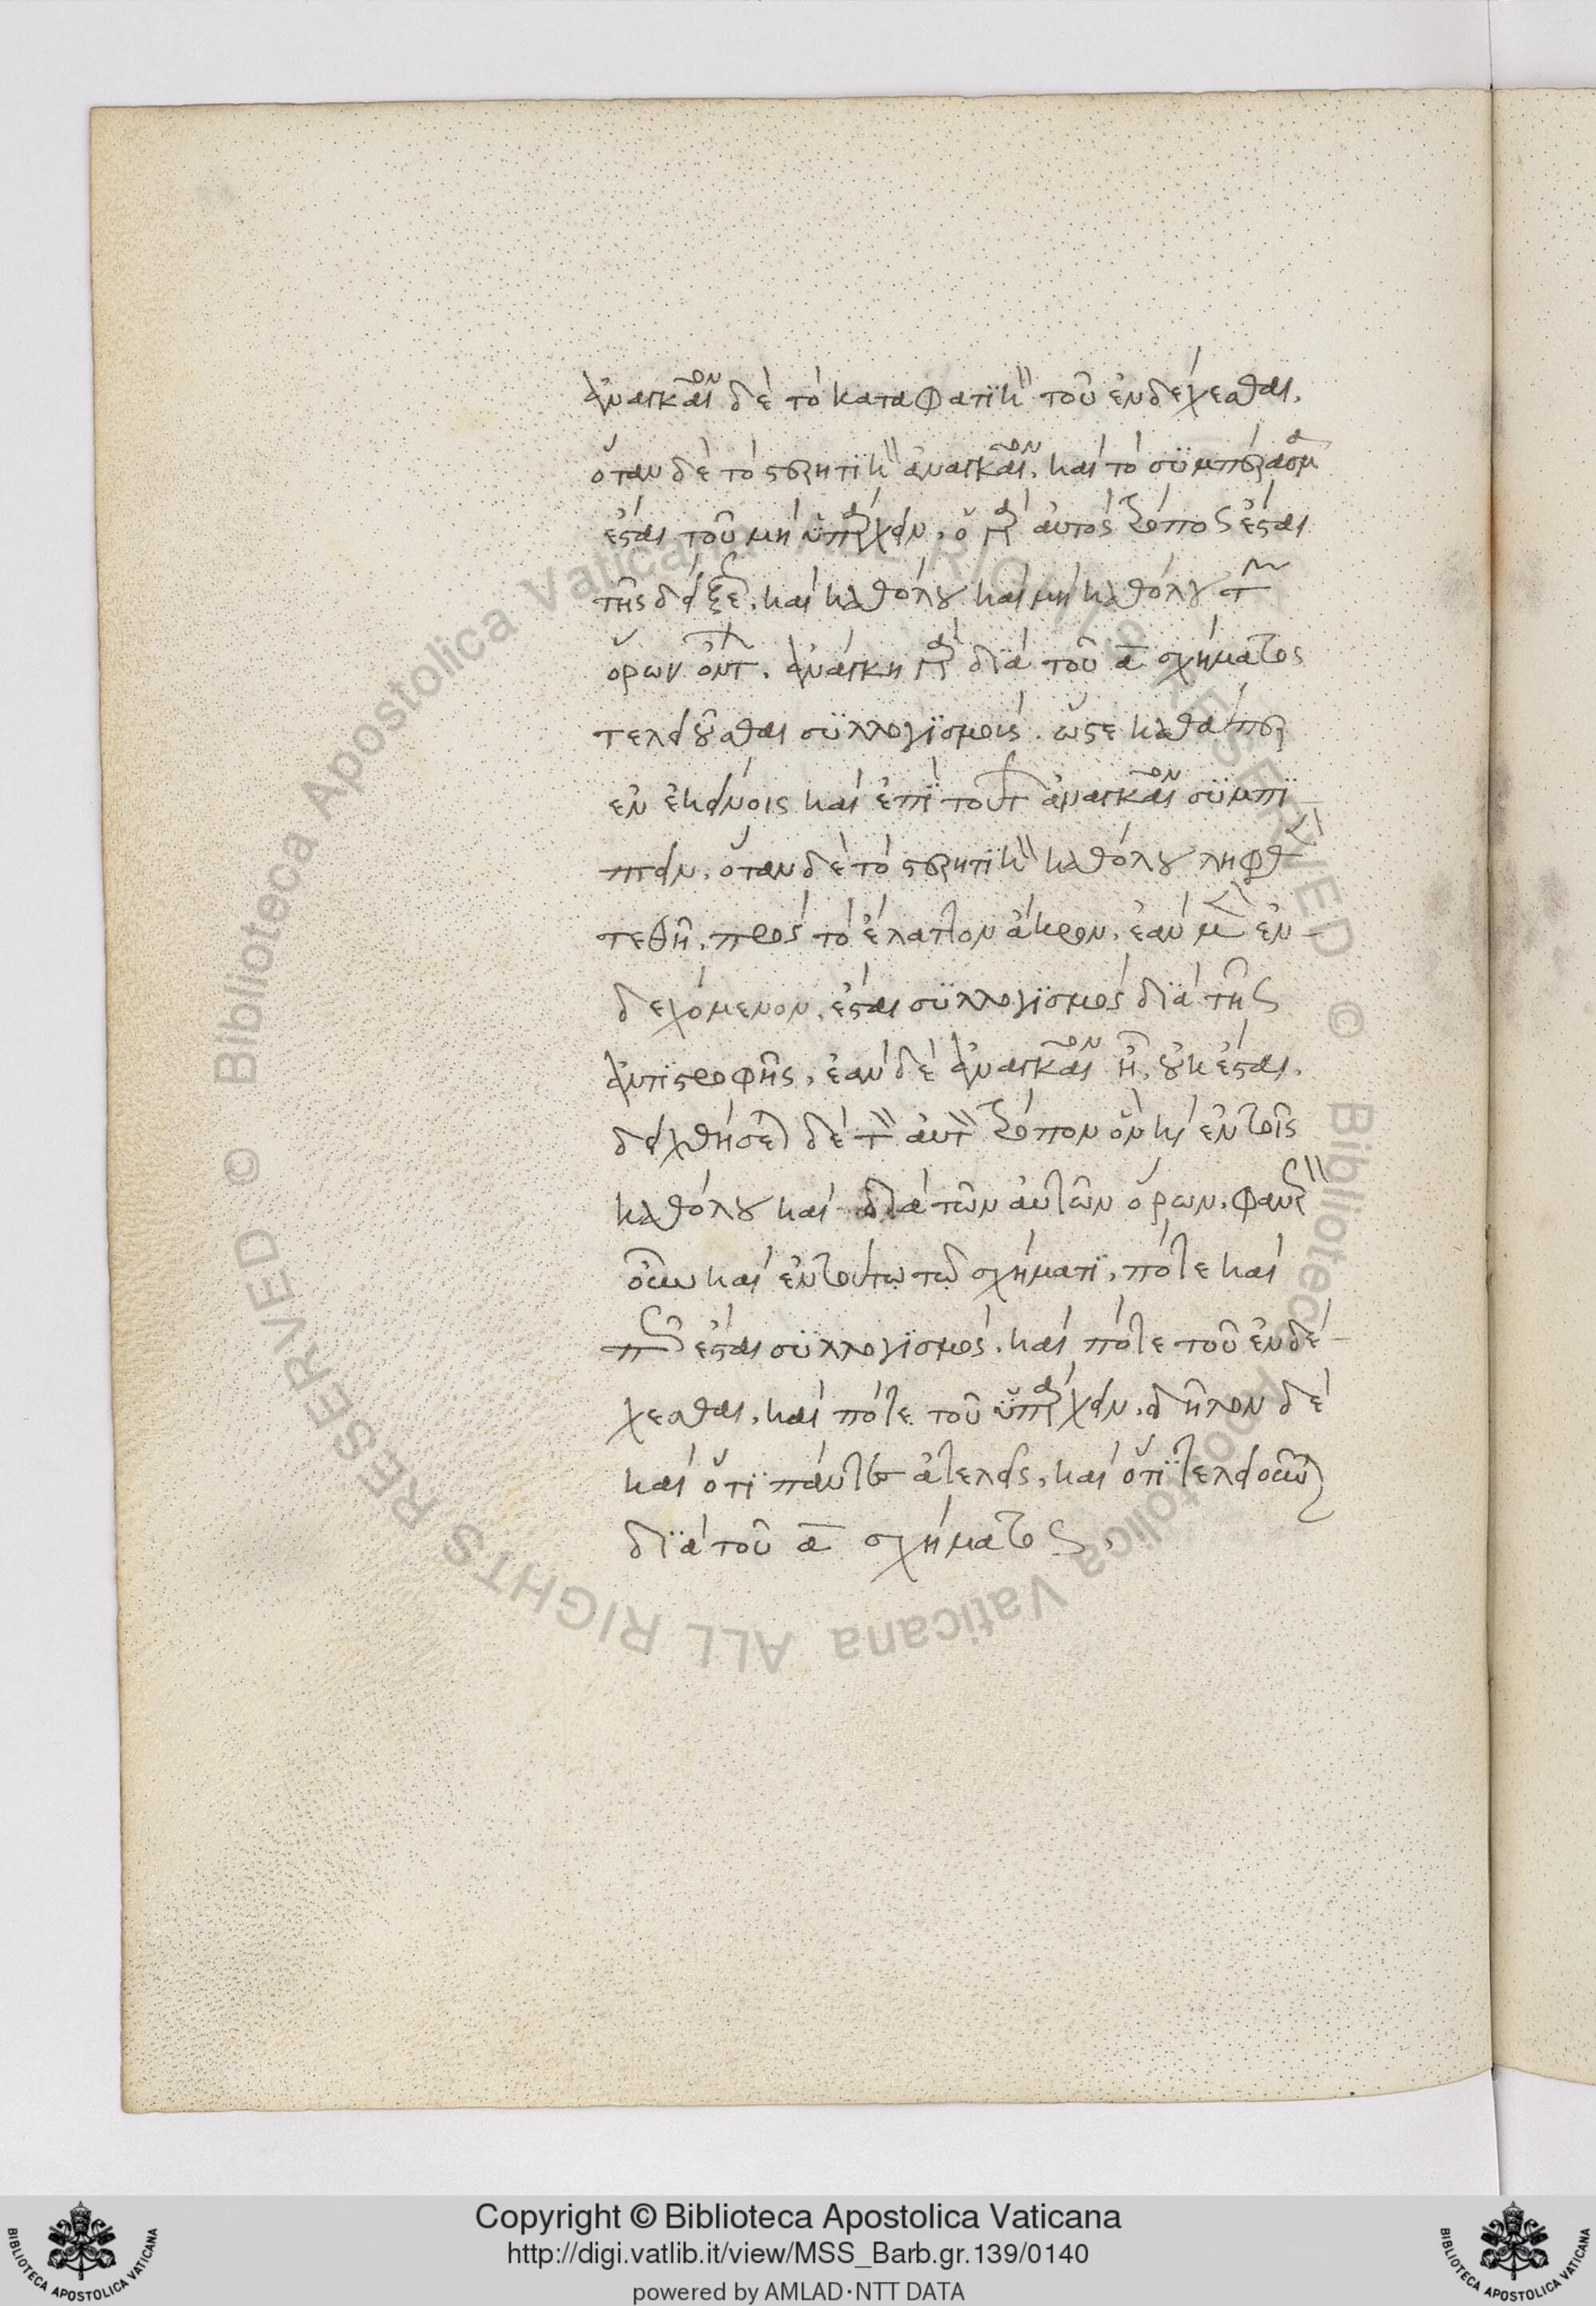 ἀναγκαῖον δὲ τὸ καταφατϊκὸν τοῦ ἐνδέχεσθαι.
ὅταν δὲ τὸ στερητϊκὸν ἀναγκαῖον, καὶ τὸ συμπέρασμα
ἔσται τοῦ μὴ ὑπάρχειν. ὁ γὰρ αὐτὸς τρόπος ἔσται
τῆς δείξεως, καὶ καθόλου καὶ μὴ καθόλου τῶν
ὅρων ὄντων. ἀνάγκη γὰρ διὰ τοῦ α σχήματος
τελειοῦσθαι συλλογϊσμοὺς. ὥστε καθάπερ
ἐν ἐκείνοις καὶ ἐπὶ τούτων ἀναγκαῖον συμπί
πτειν. ὅταν δὲ τὸ στερητϊκὸν καθόλου ληφθὲν
τεθῆ, πρὸς τὸ ἔλαττον ἄκρον, ἐὰν μὲν ἐν
δεχόμενον, ἔσται συλλογϊσμὸς διὰ τῆς
ἀντιστροφῆς, ἐὰν δὲ ἀναγκαῖον ἦ, οὐκ ἔσται.
δειχθήσεται δὲ τὸν αὐτὸν τρόπον ὃν καὶ ἐν τοῖς
καθόλου καὶ διὰ τῶν αὐτῶν ὅρων. φανερὸν
οὖν καὶ ἐν τούτω τῶ σχήματϊ, πότε καὶ
πῶς ἔσται συλλογϊσμὸς. καὶ πότε τοῦ ἐνδέ
χεσθαι, καὶ πότε τοῦ ὑπάρχειν. δῆλον δὲ
καὶ ὅτϊ πάντες ἀτελεῖς, καὶ ὅτϊ τελειοῦνται
διὰ τοῦ α σχήματος.
Copyright © Biblioteca Apostolica Vaticana
http://digi.vatlib.it/view/MSS_Barb.gr.139/0140
powered by AMLAD·NTT DATA